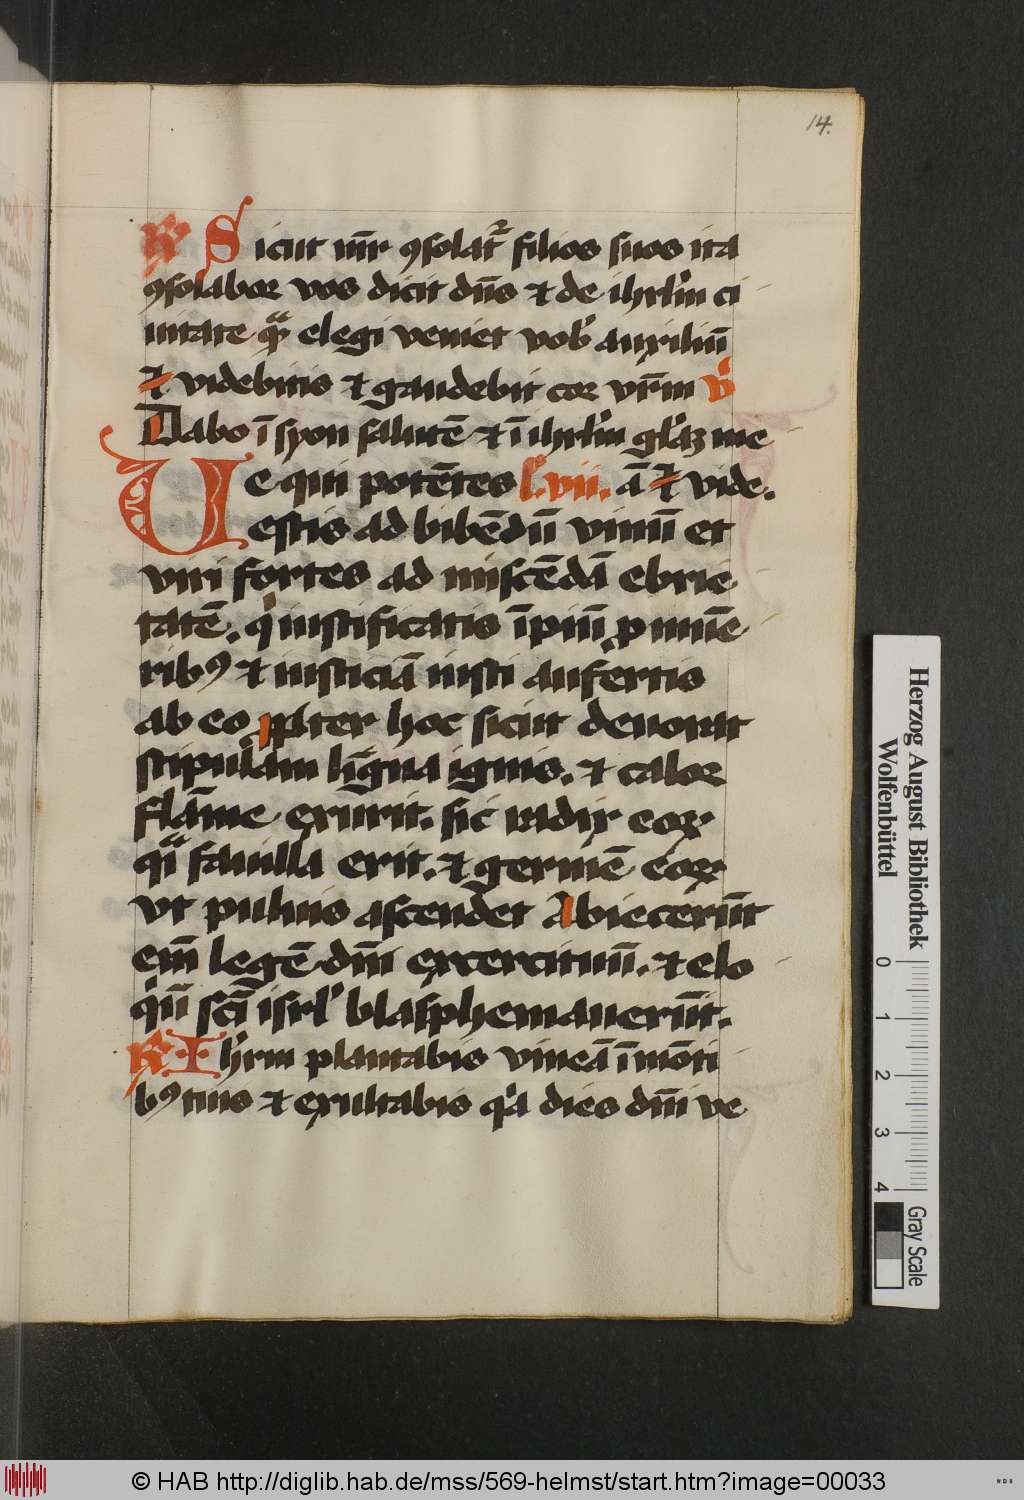 14.
R Sicut mr̄ ꝯsolat᷑ filios suos ita
ꝯsolabor vos dicit dn̄s et de ihrl̄m ci
uitate qͣ elegi veniet vob̾ auxiliū
et videbitis et gaudebit cor vr̄m V̾
Dabo ī syon salutē et ī ihrl̄m gl̄aꝫ me
Ue qui potētes l̾.vii. ā et vide.
estis ad bibēdū vinū et
viri fortes ad miscēdā ebrie
tatē. qͥ iustificatis īpiū ꝓ munē
ribꝰ et iusticiā iusti aufertis
ab eo ꝓpter hoc sicut deuorat
stipulam līgua ignis. et calor
flāme exurit. sic radix eoꝝ
qͣi fauilla erit. et germē eoꝝ
vt puluis ascendet Abiecerūt
em̄ legē dn̄i exercituū. et elo
qͥū scī isrl̾ blasphemauerūt.
R Ihr̄lm plantabis vineā ī mōti
bꝰ tuis et exultabis qͥa dies dn̄i ve
Herzog August Bibliothek
Wolfenbüttel
0 1 2 3 4
Gray Scale
© HAB http://diglib.hab.de/mss/569-helmst/start.htm?image=00033